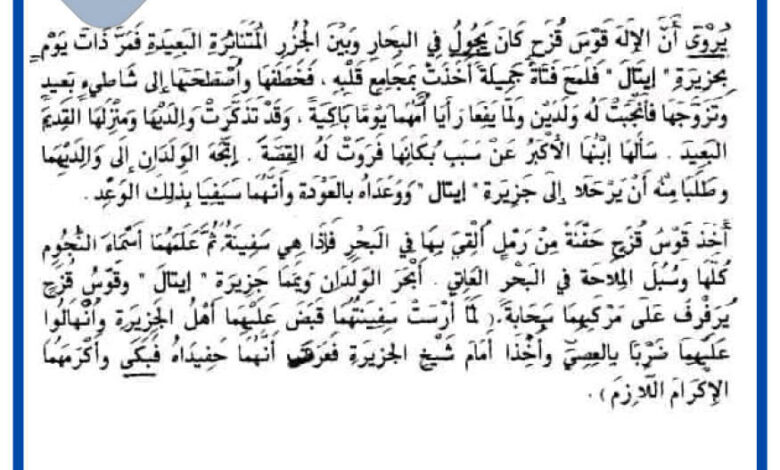 يُرْوَى أَنَّ الإِلَهَ قَوْسَ قُزَحٍ كَانَ يَجُولُ فِي البِحَارِ وَبَيْنَ الجُزُرِ المُتَنَاثِرَةِ البَعِيدَةِ فَمَرَّ ذَاتَ يَوْمٍ
بِجَزِيرَةِ " إيتَالَ " فَلَمَحَ فَتَاةً جَمِيلَةً أَخَذَتْ بِمَجَامِعِ قَلْبِهِ ، فَخَطَفَهَا وَاصْطَحَبَهَا إِلَى شَاطِيءٍ بَعِيدٍ
وَتَزَوَّجَهَا فَأَنْجَبَتْ لَهُ وَلَدَيْنِ وَلَمَّا يَفَعَا رَأَيَا أُمَّهُمَا يَوْمًا بَاكِيَةً ، وَقَدْ تَذَكَّرَتْ وَالِدَيْهَا وَمَنْزِلَهَا القَدِيمَ
البَعِيدَ . سَأَلَهَا إِبْنُهَا الأَكْبَرُ عَنْ سَبَبِ بُكَائِهَا فَرَوَتْ لَهُ القِصَّةَ . إِتَّجَهَ الوَلَدَانِ إِلَى وَالِدَيْهِمَا
وَطَلَبَا مِنْهُ أَنْ يَرْحَلَا إِلَى جَزِيرَةِ " إيتَال " وَوَعَدَاهُ بِالعَوْدَةِ وَأَنَّهُمَا سَيَفِيَا بِذَلِكَ الوَعْدِ .
أَخَذَ قَوْسُ قُزَحٍ حَفْنَةً مِنْ رَمْلٍ أَلْقَى بِهَا فِي البَحْرِ فَإِذَا هِيَ سَفِينَةٌ ثُمَّ عَلَّمَهُمَا أَسْمَاءَ النُّجُومِ
كُلَّهَا وَسُبُلَ المِلَاحَةِ فِي البَحْرِ العَاتِي . أَبْحَرَ الوَلَدَانِ وَيَمَّمَا جَزِيرَةَ " إيتَالَ " وَقَوْسُ قُزَحٍ
يُرَفْرِفُ عَلَى مَرْكَبِهِمَا سَحَابَةً.( لَمَّا أَرْسَتْ سَفِينَتُهُمَا قَبَضَ عَلَيْهِمَا أَهْلُ الجَزِيرَةِ وَانْهَالُوا
عَلَيْهِمَا ضَرْبًا بِالعِصِيِّ وَأُخِذَا أَمَامَ شَيْخِ الجَزِيرَةِ فَعَرَفَ أَنَّهُمَا حَفِيدَاهُ فَبَكَى وَأَكْرَمَهُمَا
الإِكْرَامَ اللَّازِمَ ) .